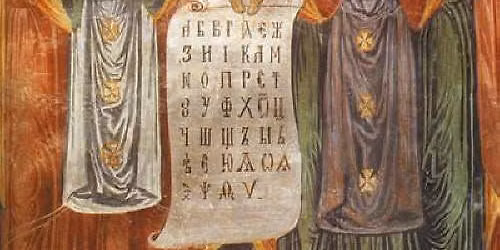 А Б В Г Д Е Ж
З Н І К Л М
Н О П Р Е Т
Ȣ У Ф Х Ѿ Ц
Ч Ш Щ Ъ Ы Ь
Ѣ Є Ю Ѫ Ѡ Ѧ
Ѯ Ѱ Ѳ Ѵ